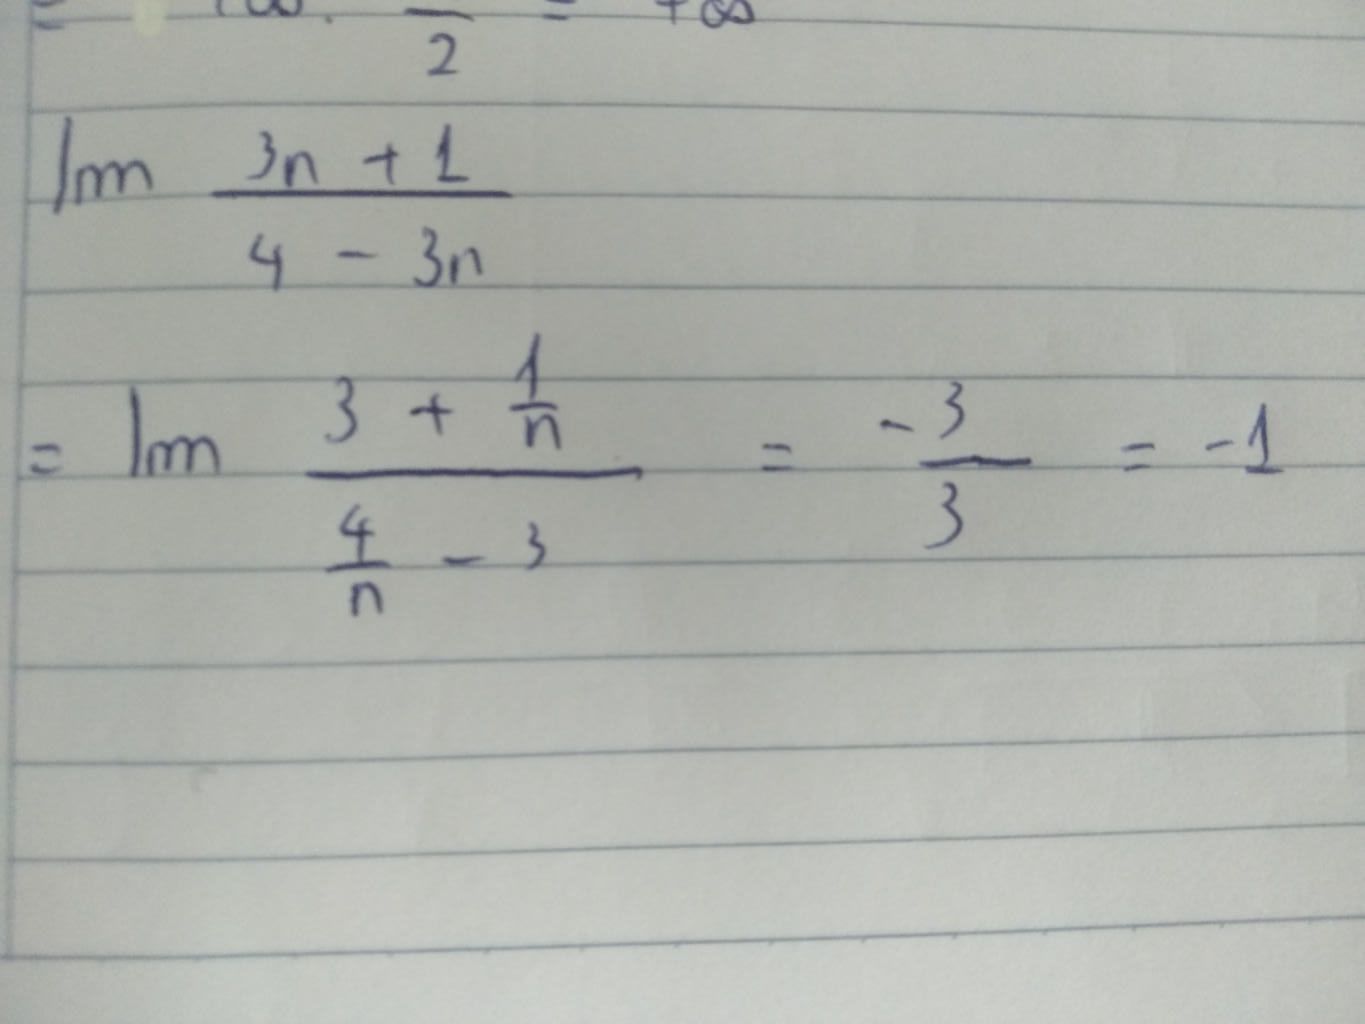 = +∞ . /2 = +∞
lim (3n + 1)/(4 - 3n)
= lim (3 + 1/n)/(4/n - 3) = -3/3 = -1